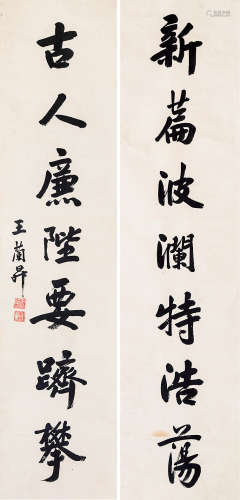 新篇波瀾特浩蕩
古人廉陛要躋攀
王蘭昇